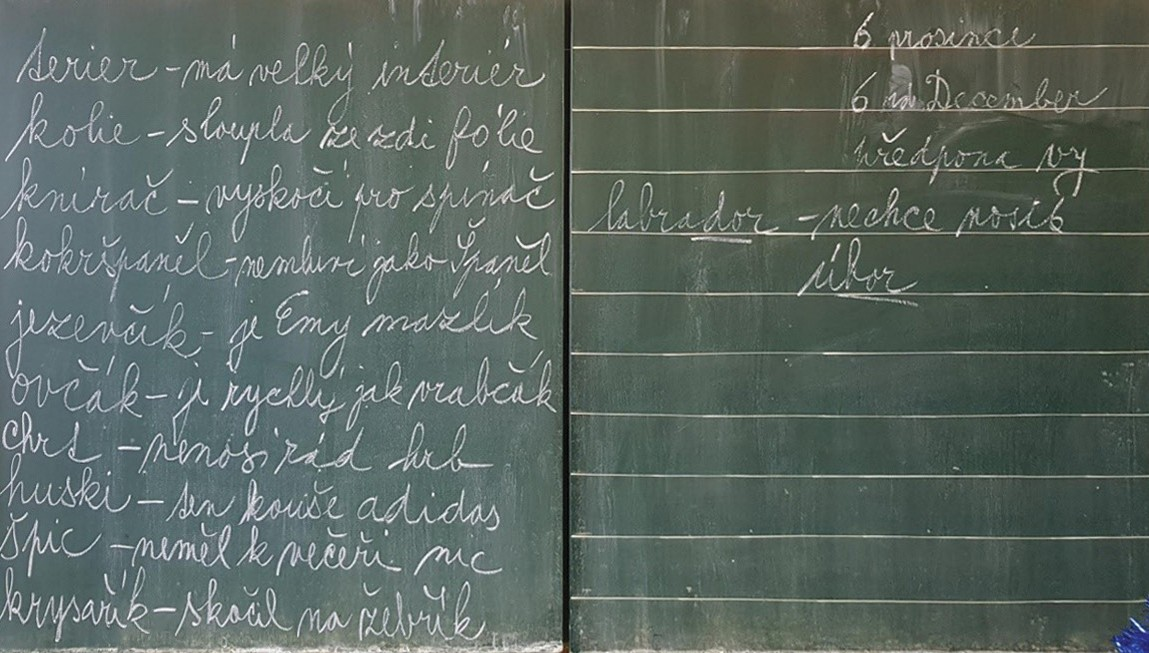 terier - má velký interiér
kolie - sloupla ze zdi fólie
knírač - vyskočí pro spínač
kokršpaněl - nemluví jako Španěl
jezevčík - je Emy mazlík
ovčák - je rychlý jak vrabčák
chrt - nenosí rád hrb
huski - ten kouše adidas
špic - neměl k večeři nic
krysařík - skočil na žebřík
6 prosince
6 December
předpona vy
labrador - nechce nosit
úbor